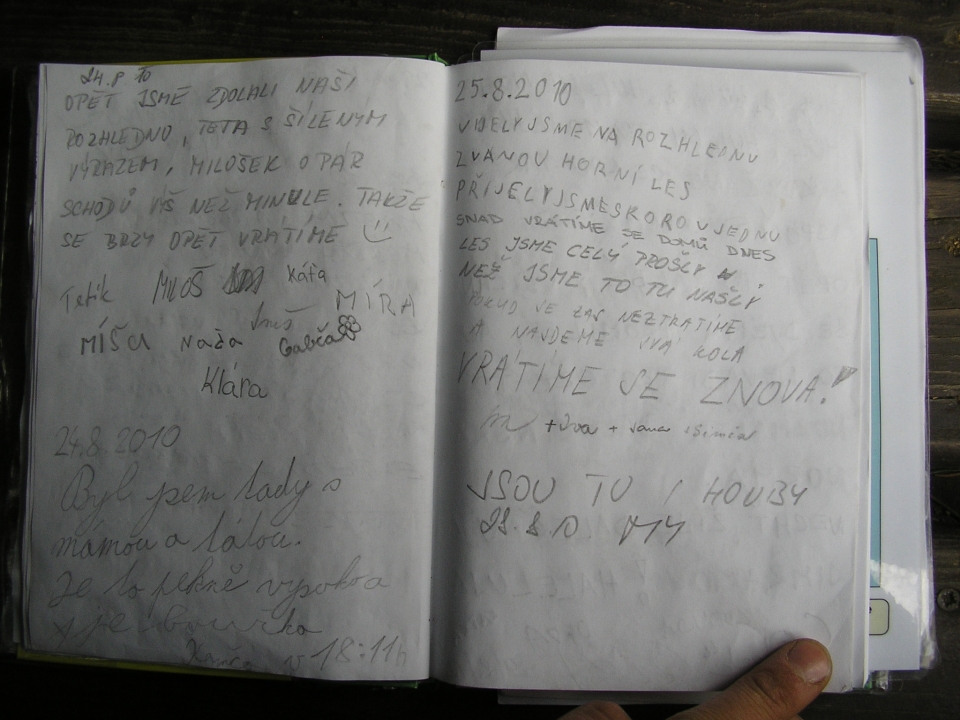 24.8.10
OPĚT JSME ZDOLALI NAŠI
ROZHLEDNU, TETA S ŠÍLENÝM
VÝRAZEM, MILOŠEK O PÁR
SCHODŮ VÝŠ NEŽ MINULE. TAKŽE
SE BRZY OPĚT VRÁTÍME
MILOŠ Káťa
MÍRA
MÍŠA Naďa Gabča
Klára
24.8.2010
Byl jsem tady s
mámou a tátou.
Je to pěkně vysoko a
je bouřka
v 18:11h
25.8.2010
VYJELY JSME NA ROZHLEDNU
Z VANOU HORNÍ LES
PŘIJELY JSME SKORO V JEDNU
SNAD VRÁTÍME SE DOMŮ DNES
LES JSME CELÝ PROŠLY
NEŽ JSME TO TU NAŠLY
POKUD SE ZAS NEZTRATÍME
A NAJDEME SVÁ KOLA
VRÁTÍME SE ZNOVA!
+ Iva + Jana +
JSOU TU I HOUBY
28.8.10. MY